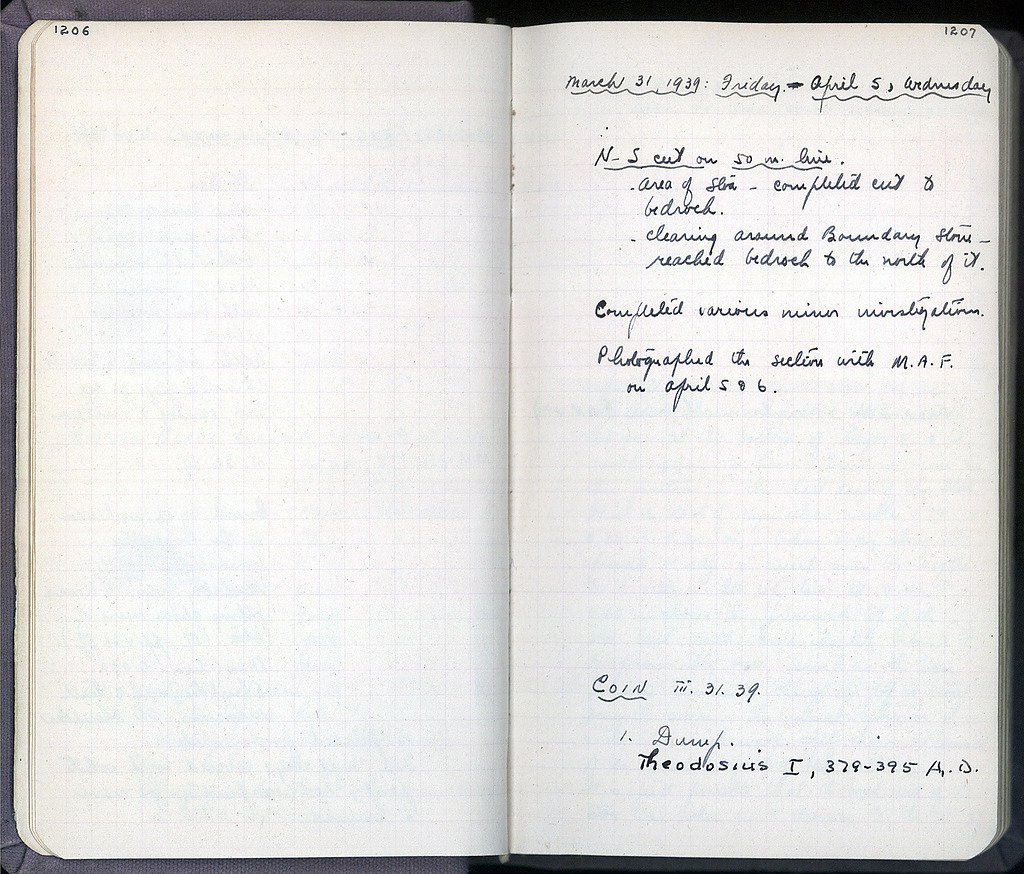 1206
1207
March 31, 1939: Friday - April 5, Wednesday
N-S cut on 50 m. line.
- area of Stoa - completed cut to
bedrock.
- clearing around Boundary Stone -
reached bedrock to the north of it.
Completed various minor investigations.
Photographed the section with M.A.F.
on April 5 & 6.
COIN III. 31. 39.
1. Dump.
Theodosius I, 379-395 A.D.